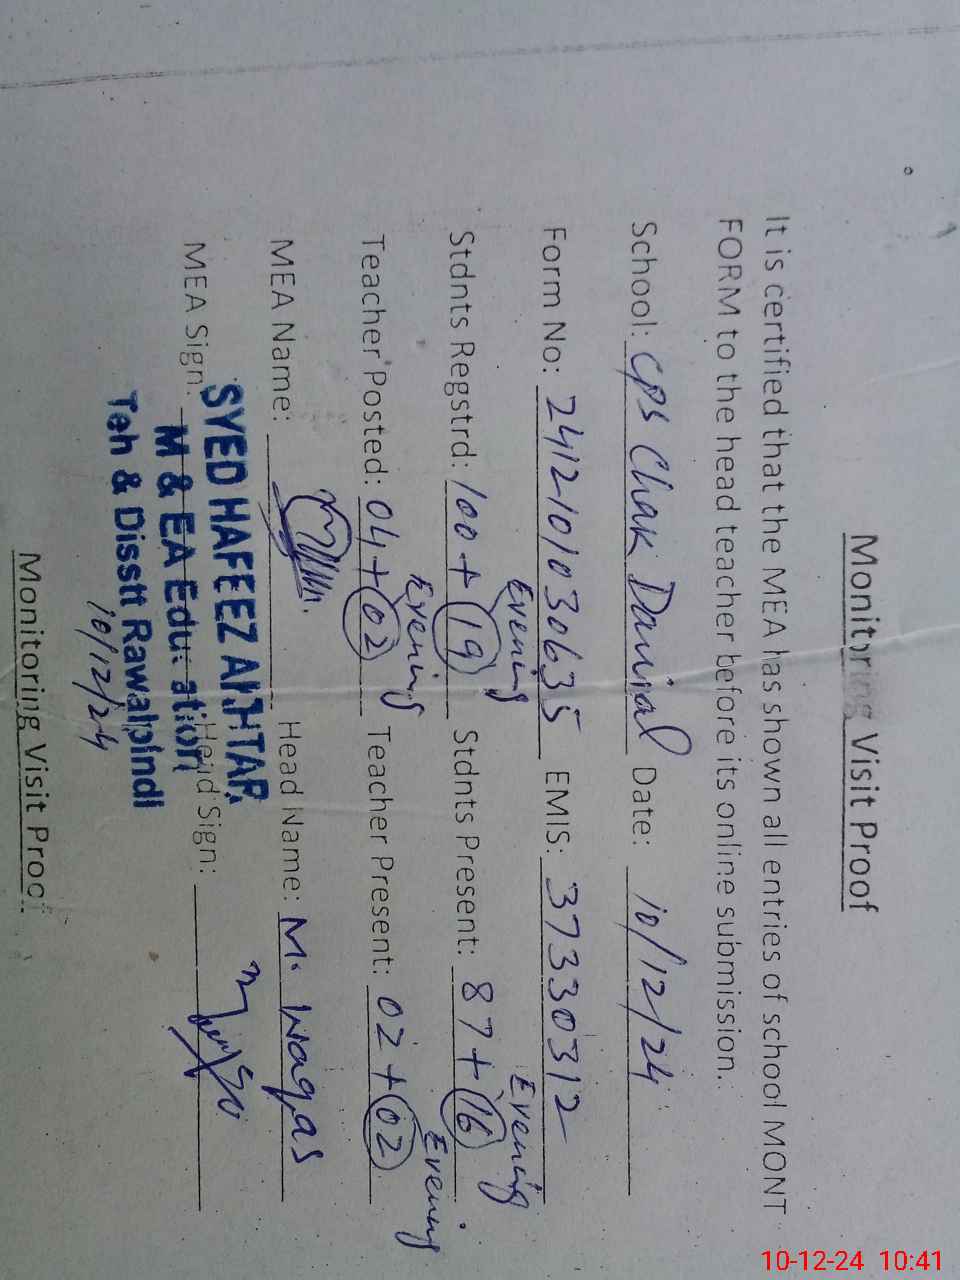 Monitoring Visit Proof
It is certified that the MEA has shown all entries of school MONT
FORM to the head teacher before its online submission.
School: CPS Chak Danial Date: 10/12/24
Form No: 2412-101030635 EMIS: 37330312
Evening Evening
Stdnts Regstrd: 100 + 19 Stdnts Present: 87 + 16
Evening Evening
Teacher Posted: 04 + 02 Teacher Present: 02 + 02
MEA Name: Head Name: M. Waqas
SYED HAFEEZ AKHTAR
MEA Sign: Head Sign:
M & EA Education
Teh & Disstt Rawalpindi
10/12/24
Monitoring Visit Proof
10-12-24 10:41